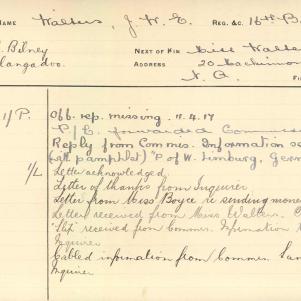 NAME Walters, J. W. E. REG. &C. 16th B
Bilney NEXT OF KIN Miss Walte
langadoo. ADDRESS 20
1/P. Off. rep. missing. 11.4.17
P/C. forwarded Commiss
Reply from Commis. Information se
pamphlet) P of W. Limburg, Germ
1/L Letter acknowledged
Letter of thanks from Inquirer
Letter from Miss Boyce re sending mone
Letter received from Miss Walters.
"Slip" received from Commr. Information
Inquirer
Cabled information from Commr.
Inquirer